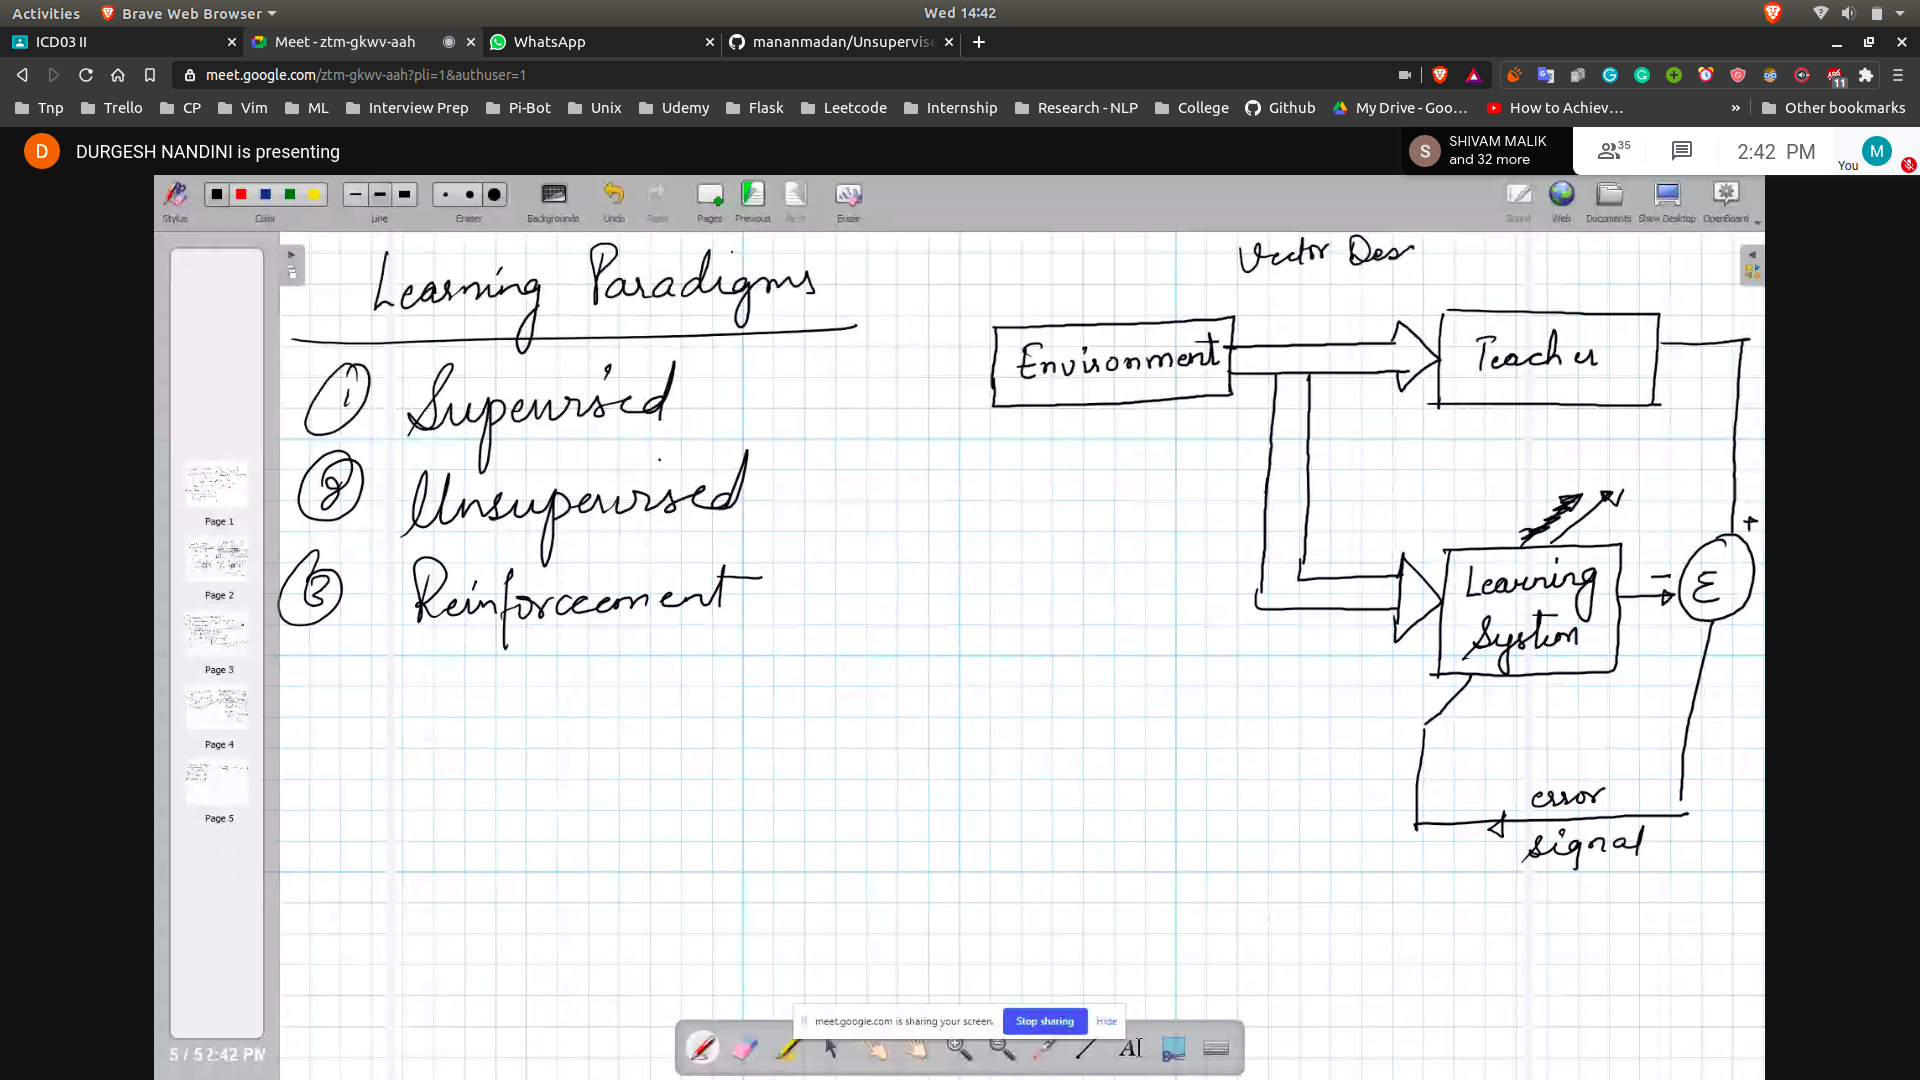 Activities Brave Web Browser Wed 14:42
ICD03 II Meet - ztm-gkwv-aah WhatsApp mananmadan/Unsupervise
meet.google.com/ztm-gkwv-aah?pli=1&authuser=1 11
Tnp Trello CP Vim ML Interview Prep Pi-Bot Unix Udemy Flask Leetcode Internship Research - NLP College Github My Drive - Goo... How to Achiev... » Other bookmarks
D DURGESH NANDINI is presenting
S SHIVAM MALIK
and 32 more
35
2:42 PM
You M
Stylus Color Line Eraser Backgrounds Undo Redo Pages Previous Next Erase Board Web Documents Show Desktop OpenBoard
Learning Paradigms
1 Supervised
2 Unsupervised
3 Reinforcement
Vector Des
Environment
Teacher
+
Learning
System
-
Σ
error
signal
Page 1
Page 2
Page 3
Page 4
Page 5
5 / 5 2:42 PM
meet.google.com is sharing your screen. Stop sharing Hide
AI